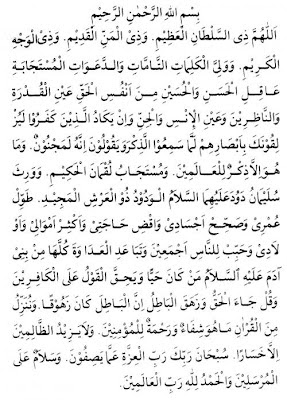 بِسْمِ اللهِ الرَّحْمٰنِ الرَّحِيْمِ
اَللّٰهُمَّ ذِى السُّلْطَانِ الْعَظِيْمِ. وَذِى الْمَنِّ الْقَدِيْمِ. وَذِى الْوَجْهِ
الْكَرِيْمِ. وَوَلِيَّ الْكَلِمَاتِ التَّامَّاتِ وَالدَّعَوَاتِ الْمُسْتَجَابَةِ
عَاقِلِ الْحَسَنِ وَالْحُسَيْنِ مِنْ اَنْفُسِ الْحَقِّ عَيْنِ الْقُدْرَةِ
وَالنَّاظِرِيْنَ وَعَيْنِ الْاِنْسِ وَالْجِنِّ وَاِنْ يَكَادُ الَّذِيْنَ كَفَرُوْا لَيُزْ
لِقُوْنَكَ بِاَبْصَارِهِمْ لَمَّا سَمِعُوا الذِّكْرَ وَيَقُوْلُوْنَ اِنَّهُ لَمَجْنُوْنٌ. وَمَا
هُوَ اِلَّا ذِكْرٌ لِلْعَالَمِيْنَ. وَمُسْتَجَابُ لُقْمَانَ الْحَكِيْمِ. وَوَرِثَ
سُلَيْمَانُ دَاوُدَ عَلَيْهِمَا السَّلَامُ الْوَدُوْدُ ذُو الْعَرْشِ الْمَجِيْدِ. طَوِّلْ
عُمْرِيْ وَصَحِّحْ اَجْسَادِيْ وَاقْضِ حَاجَتِيْ وَاَكْثِرْ اَمْوَالِيْ وَاَوْ
لَادِيْ وَحَبِّبْ لِلنَّاسِ اَجْمَعِيْنَ وَتَبَاعَدِ الْعَدَاوَةَ كُلَّهَا مِنْ بَنِيْ
اٰدَمَ عَلَيْهِ السَّلَامُ مَنْ كَانَ حَيًّا وَيَحِقَّ الْقَوْلُ عَلَى الْكَافِرِيْنَ
وَقُلْ جَاءَ الْحَقُّ وَزَهَقَ الْبَاطِلُ اِنَّ الْبَاطِلَ كَانَ زَهُوْقًا. وَنُنَزِّلُ
مِنَ الْقُرْاٰنِ مَا هُوَ شِفَاءٌ وَرَحْمَةٌ لِلْمُؤْمِنِيْنَ. وَلَا يَزِيْدُ الظَّالِمِيْنَ
اِلَّا خَسَارًا. سُبْحَانَ رَبِّكَ رَبِّ الْعِزَّةِ عَمَّا يَصِفُوْنَ. وَسَلَامٌ عَلَى
الْمُرْسَلِيْنَ وَالْحَمْدُ لِلّٰهِ رَبِّ الْعَالَمِيْنَ.